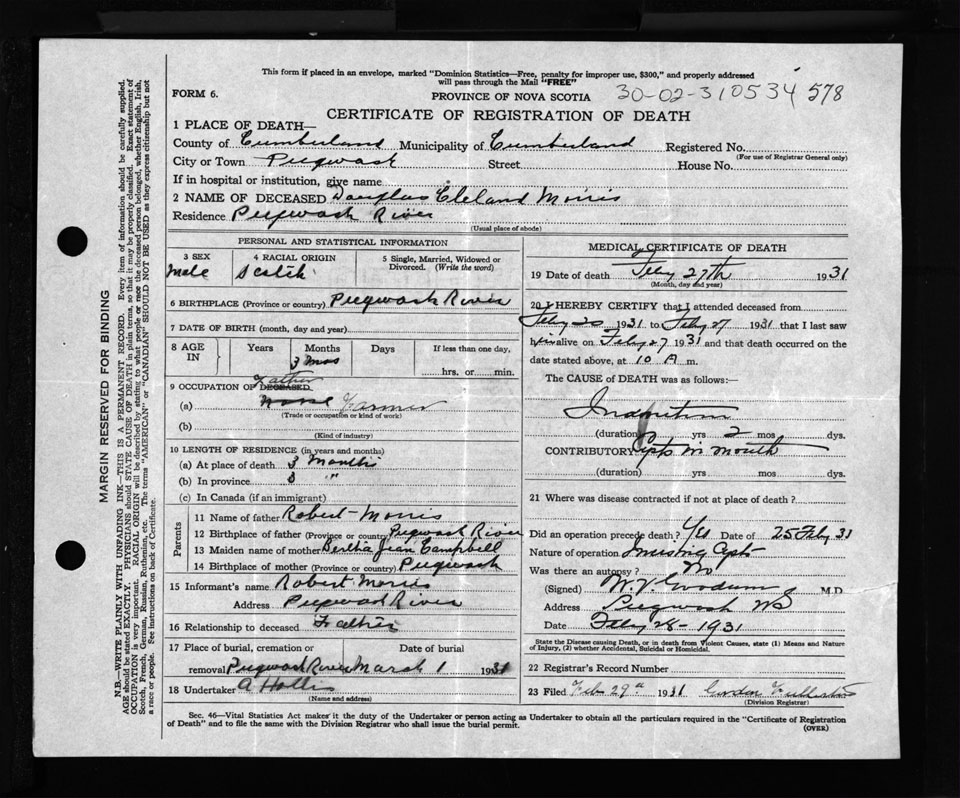 This form if placed in an envelope, marked "Dominion Statistics—Free, penalty for improper use, $300," and properly addressed
will pass through the Mail "FREE"
FORM 6.
PROVINCE OF NOVA SCOTIA
30-02-310534 578
CERTIFICATE OF REGISTRATION OF DEATH
1 PLACE OF DEATH—
County of Cumberland Municipality of Cumberland Registered No.
(For use of Registrar General only)
City or Town Pugwash Street House No.
If in hospital or institution, give name
2 NAME OF DECEASED Douglas Cleland Morris
Residence Pugwash River
(Usual place of abode)
PERSONAL AND STATISTICAL INFORMATION
3 SEX 4 RACIAL ORIGIN 5 Single, Married, Widowed or
Divorced. (Write the word)
Male Scotch
6 BIRTHPLACE (Province or country) Pugwash River
7 DATE OF BIRTH (month, day and year)
8 AGE IN Years Months Days If less than one day,
3 mos
hrs. or min.
Father
9 OCCUPATION OF DECEASED
(a) None Farmer
(Trade or occupation or kind of work)
(b)
(Kind of industry)
10 LENGTH OF RESIDENCE (in years and months)
(a) At place of death 3 Months
(b) In province 3 "
(c) In Canada (if an immigrant)
Parents
11 Name of father Robert Morris
12 Birthplace of father (Province or country) Pugwash River
13 Maiden name of mother Bertha Jean Campbell
14 Birthplace of mother (Province or country) Pugwash
15 Informant's name Robert Morris
Address Pugwash River
16 Relationship to deceased Father
17 Place of burial, cremation or Date of burial
removal Pugwash River March 1 1931
18 Undertaker A Hollis
(Name and address)
MEDICAL CERTIFICATE OF DEATH
19 Date of death Feby 27th 1931
(Month, day and year)
20 I HEREBY CERTIFY that I attended deceased from
Feby 20 1931 to Feby 27 1931 that I last saw
him alive on Feby 27 1931 and that death occurred on the
date stated above, at 10 A m.
The CAUSE of DEATH was as follows:—
Inanition
(duration) yrs 2 mos dys.
CONTRIBUTORY in mouth
(duration) yrs. mos. dys.
21 Where was disease contracted if not at place of death?
Did an operation precede death? Yes Date of 25 Feby 31
Nature of operation
Was there an autopsy? No
(Signed) W. V. Goodwin M.D.
Address Pugwash NS
Date Feby 28-1931
State the Disease causing Death, or in death from Violent Causes, state (1) Means and Nature
of Injury, (2) whether Accidental, Suicidal or Homicidal.
22 Registrar's Record Number
23 Filed Feb 29th 1931 Gordon
(Division Registrar)
Sec. 46—Vital Statistics Act makes it the duty of the Undertaker or person acting as Undertaker to obtain all the particulars required in the "Certificate of Registration
of Death" and to file the same with the Division Registrar who shall issue the burial permit.
(OVER)
MARGIN RESERVED FOR BINDING
N.B.—WRITE PLAINLY WITH UNFADING INK—THIS IS A PERMANENT RECORD. Every item of information should be carefully supplied.
AGE should be stated EXACTLY. PHYSICIANS should STATE CAUSE OF DEATH in plain terms, so that it may be properly classified. Exact statement of
OCCUPATION is very important. RACIAL ORIGIN will be described by stating to what people or race the deceased person belonged, whether English, Irish,
Scotch, French, German, Russian, Ruthenian, etc. The terms "AMERICAN" or "CANADIAN" SHOULD NOT BE USED as they express citizenship but not
a race or people. See instructions on back of Certificate.